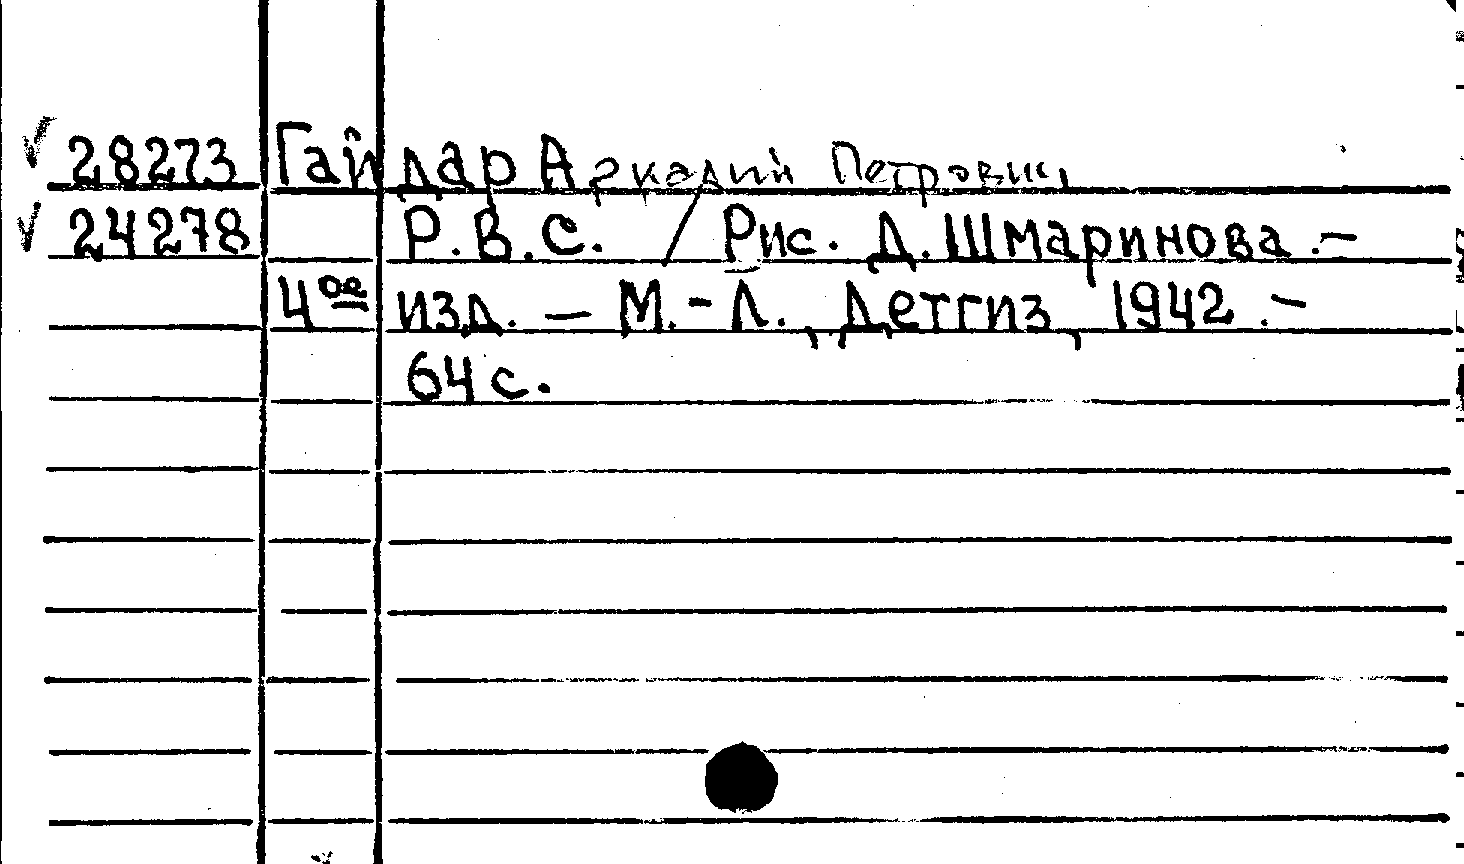 ✓ 28273 Гайдар Аркадий Петрович
✓ 24278 Р.В.С. / Рис. Д. Шмаринова. –
4ое изд. – М. - Л., Детгиз, 1942. –
64 с.